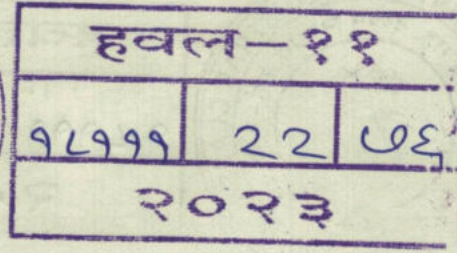 हवल-११
१८१११ 22 ७६
२०२३